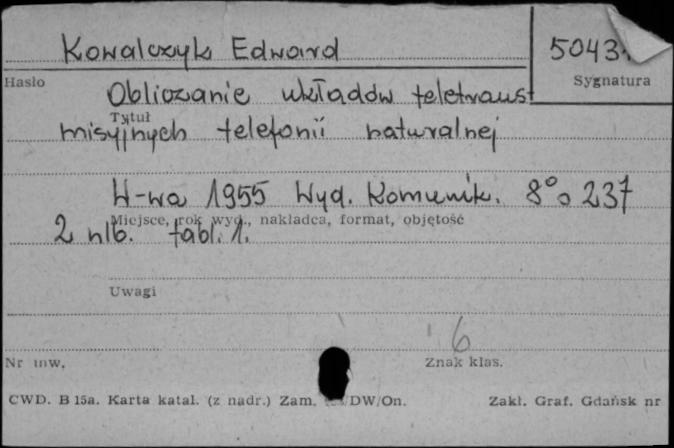 Kowalczyk Edward
5043
Hasło
Sygnatura
Obliczanie układów teletrans
Tytuł
misyjnych telefonii naturalnej
W-wa 1955 Wyd. Komunik. 8° s 237
Miejsce, rok wyd., nakładca, format, objętość
2 nlb. tabl. 1.
Uwagi
6
Nr inw,
Znak klas.
CWD. B 15a. Karta katal. (z nadr.) Zam. /DW/On.
Zakł. Graf. Gdańsk nr